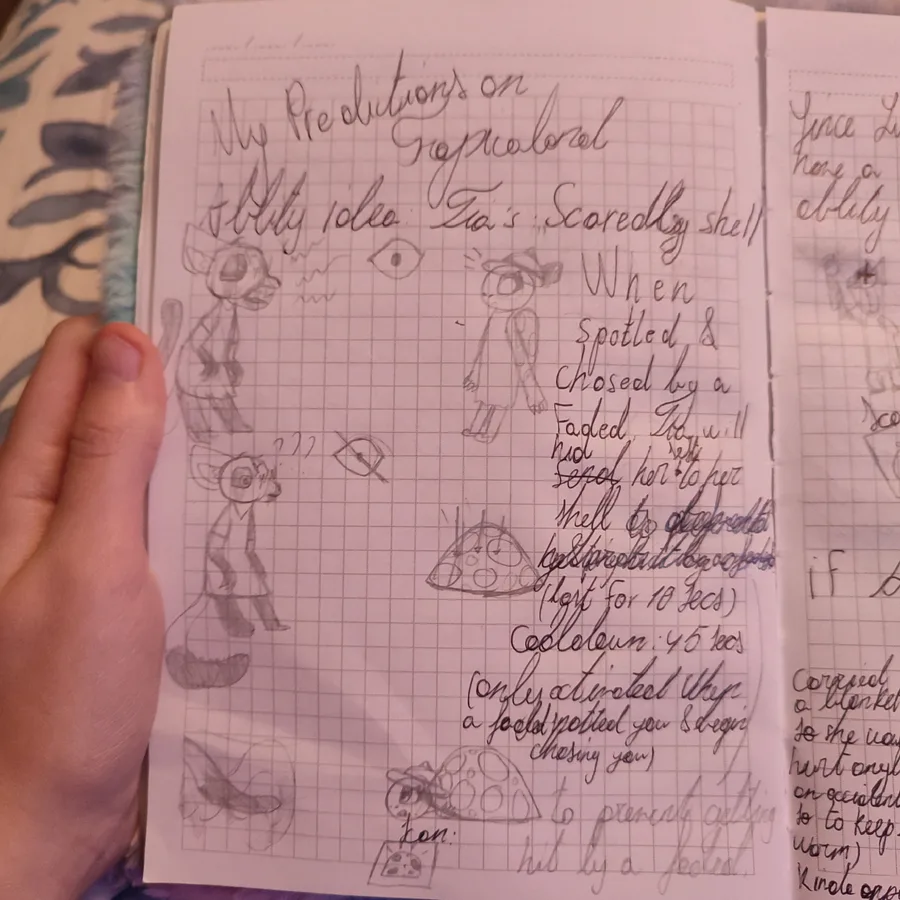 My Predutions on
Tropicaloral
Ability idea: Tia's Scaredy shell
When
spotted &
Chased by a
Faded, Tia will
hid
her self to her
shell
(last for 10 secs)
Cooldown: 45 secs
(only actinated when
a faded spotted you & begin
chasing you)
to prevent getting
hit by a faded
Icon:
???
have a
ability
if
Carried
a blanket
so she
hurt
an accident
to keep
worm)
Kinda